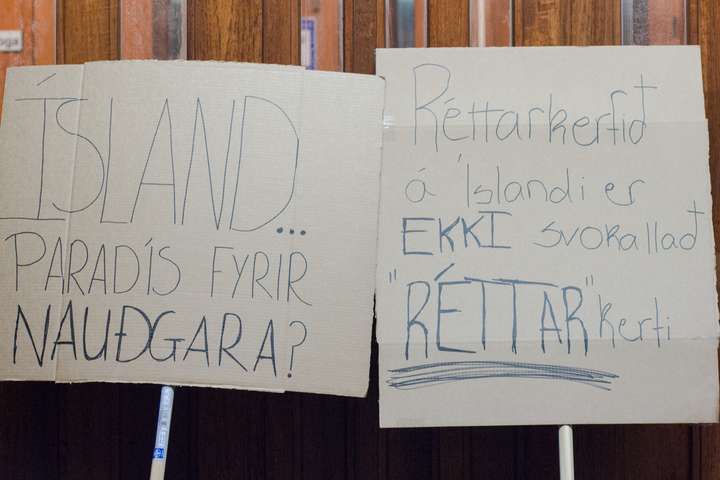 ÍSLAND...
PARADÍS FYRIR
NAUÐGARA?
Réttarkerfið
á Íslandi er
EKKI svokallað
"RÉTTAR" kerfi